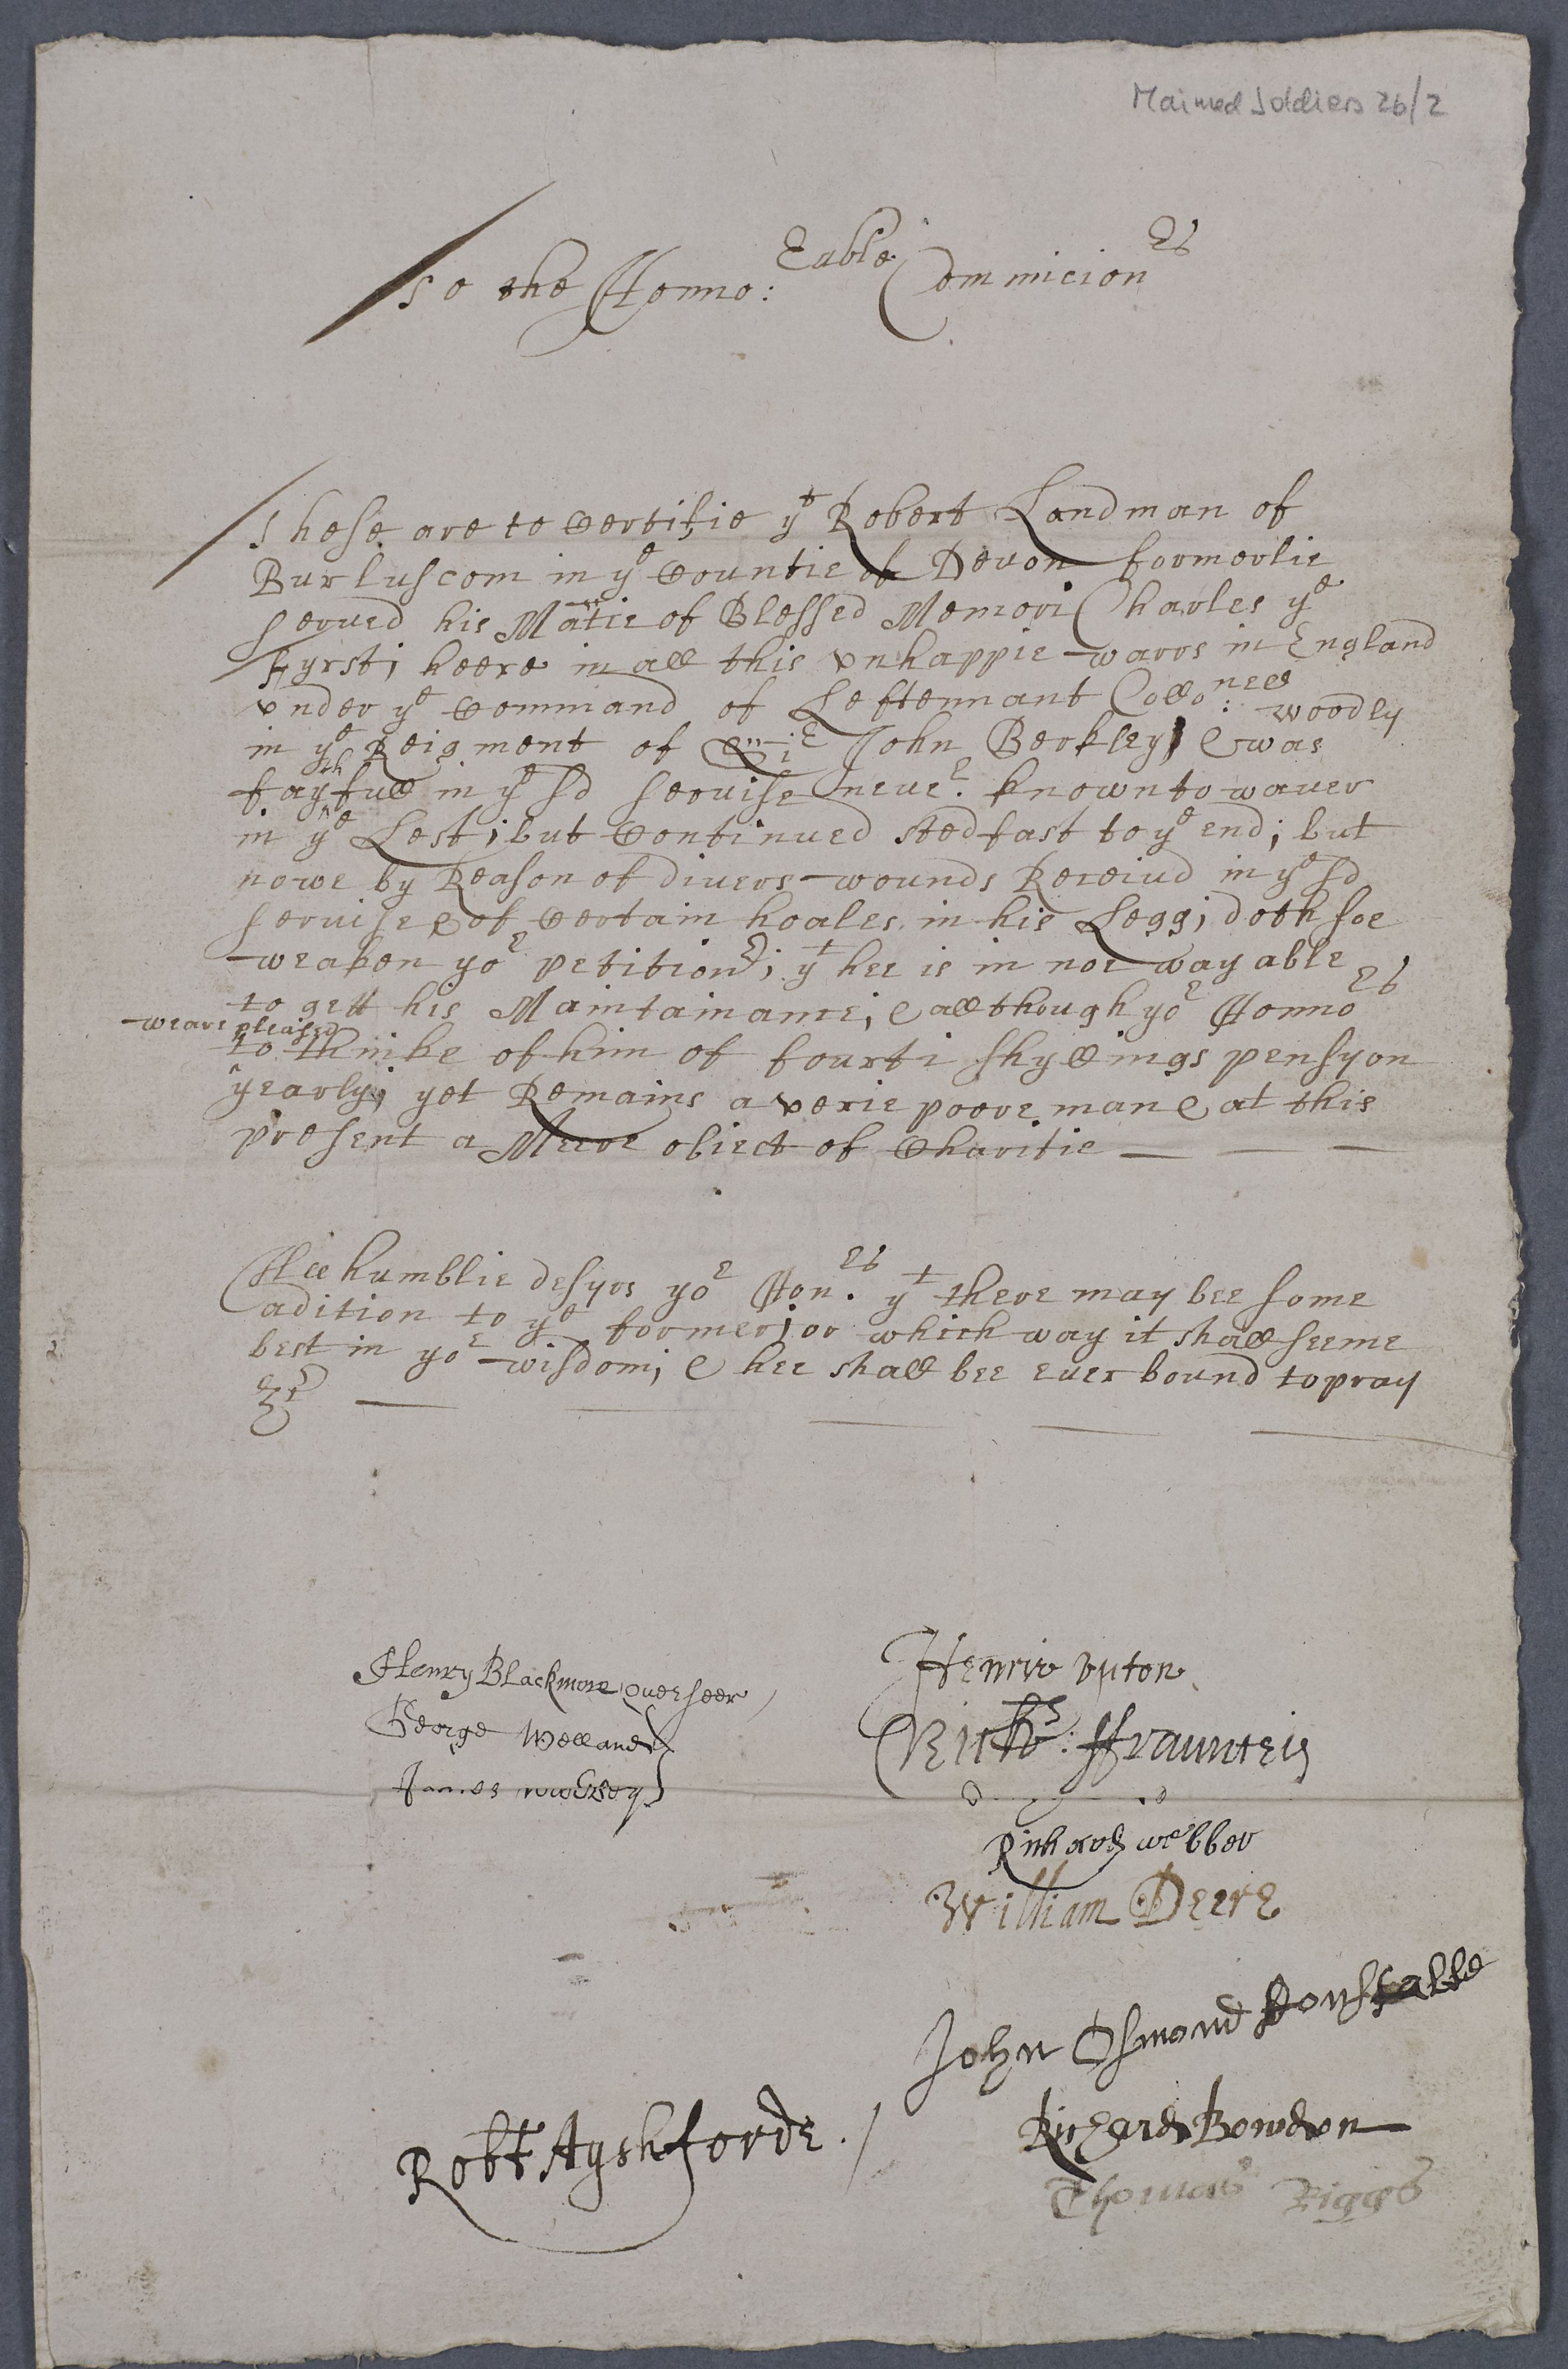 Maimed Soldiers 26/2
To the Honno:rable Commicionrs
These are to Certifie yt Robert Landman of
Burluscom in ye Countie of Devon formerlie
served his Matie of Blessed Memori Charles ye
Fyrst; heere in all this vnhappie warrs in England
vnder ye Command of Leftennant Collo:nell Woodly
in ye Reigment of Sir John Berkley; & was
faythfull in ye sd servise never known to waver
in ye Lest; but Continued stedfast to ye end; but
nowe by Reason of divers wounds Receiud in ye sd
servise & of Certain hoales in his Legg; doth soe
weaken yor petitionr; yt hee is in noe way able
to gett his Maintainance; & allthough yor Honnors
weare pleased
to thinke of him of fourti shyllings pensyon
yearly; yet Remains a verie poore man & at this
present a Meere obiect of Charitie
Hee humblie desyrs yor Hon.rs yt there may bee some
adition to ye former; or which way it shall seeme
best in yor wisdom; & hee shall bee ever bound to pray
&c
Henry Blackmore overseer
George Welland
James
Henrie
Richd: ffraunceis
Richard webber
William Deere
John Osmond Constable
Robt Ayshforde
Richard Bowdon
Thomas Riggs